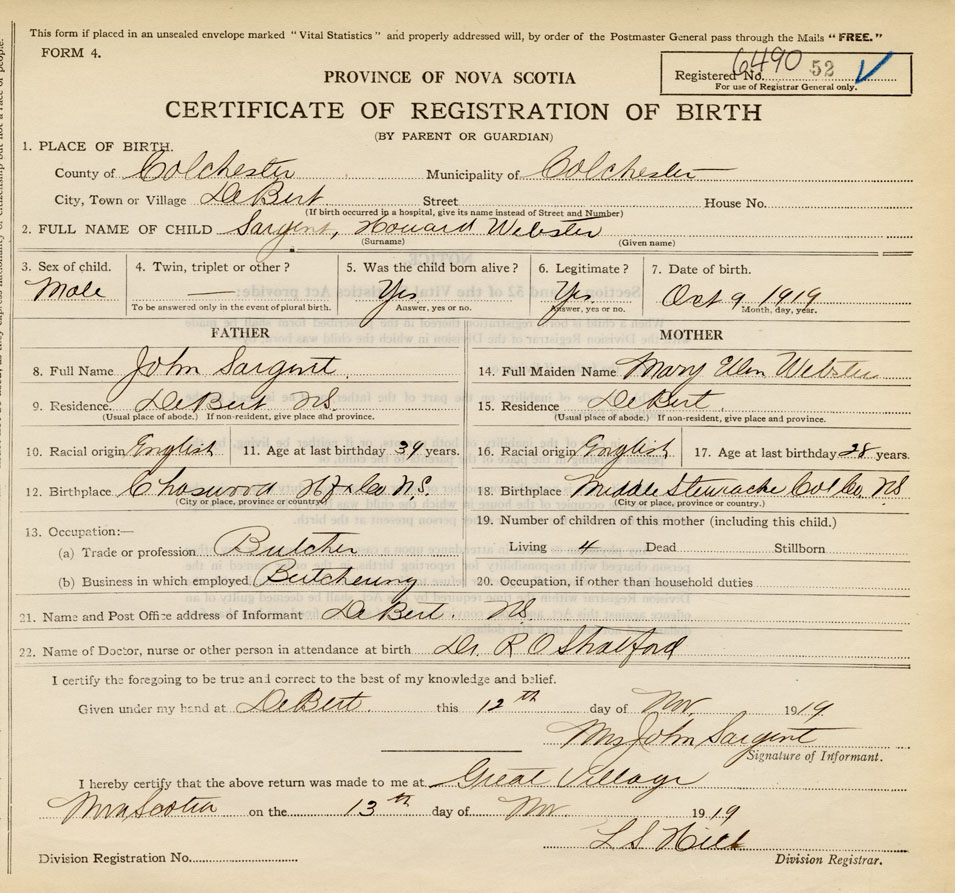 This form if placed in an unsealed envelope marked "Vital Statistics" and properly addressed will, by order of the Postmaster General pass through the Mails "FREE."
FORM 4.
Registered No. 6490 52
For use of Registrar General only.
PROVINCE OF NOVA SCOTIA
CERTIFICATE OF REGISTRATION OF BIRTH
(BY PARENT OR GUARDIAN)
1. PLACE OF BIRTH.
County of Colchester Municipality of Colchester
City, Town or Village DeBert Street House No.
(If birth occurred in a hospital, give its name instead of Street and Number)
2. FULL NAME OF CHILD Sargent, Howard Webster
(Surname) (Given name)
3. Sex of child. 4. Twin, triplet or other? 5. Was the child born alive? 6. Legitimate? 7. Date of birth.
Male — Yes Yes Oct 9 1919
To be answered only in the event of plural birth. Answer, yes or no. Answer, yes or no. Month, day, year.
FATHER MOTHER
8. Full Name John Sargent 14. Full Maiden Name Mary Ellen Webster
9. Residence DeBert N.S. 15. Residence DeBert
(Usual place of abode.) If non-resident, give place and province. (Usual place of abode.) If non-resident, give place and province.
10. Racial origin English 11. Age at last birthday 39 years. 16. Racial origin English 17. Age at last birthday 28 years.
12. Birthplace Chaswood Hfx Co N.S. 18. Birthplace Middle Stewiacke Col Co, NS
(City or place, province or country) (City or place, province or country.)
19. Number of children of this mother (including this child.)
13. Occupation:—
(a) Trade or profession Butcher Living 4 Dead Stillborn
(b) Business in which employed Butchering 20. Occupation, if other than household duties
21. Name and Post Office address of Informant DeBert. NS.
22. Name of Doctor, nurse or other person in attendance at birth Dr. R O Shatford
I certify the foregoing to be true and correct to the best of my knowledge and belief.
Given under my hand at DeBert. this 12th day of Nov. 1919.
Mrs John Sargent
Signature of Informant.
I hereby certify that the above return was made to me at Great Village
Nova Scotia on the 13th day of Nov. 1919
L S Hill
Division Registration No. Division Registrar.